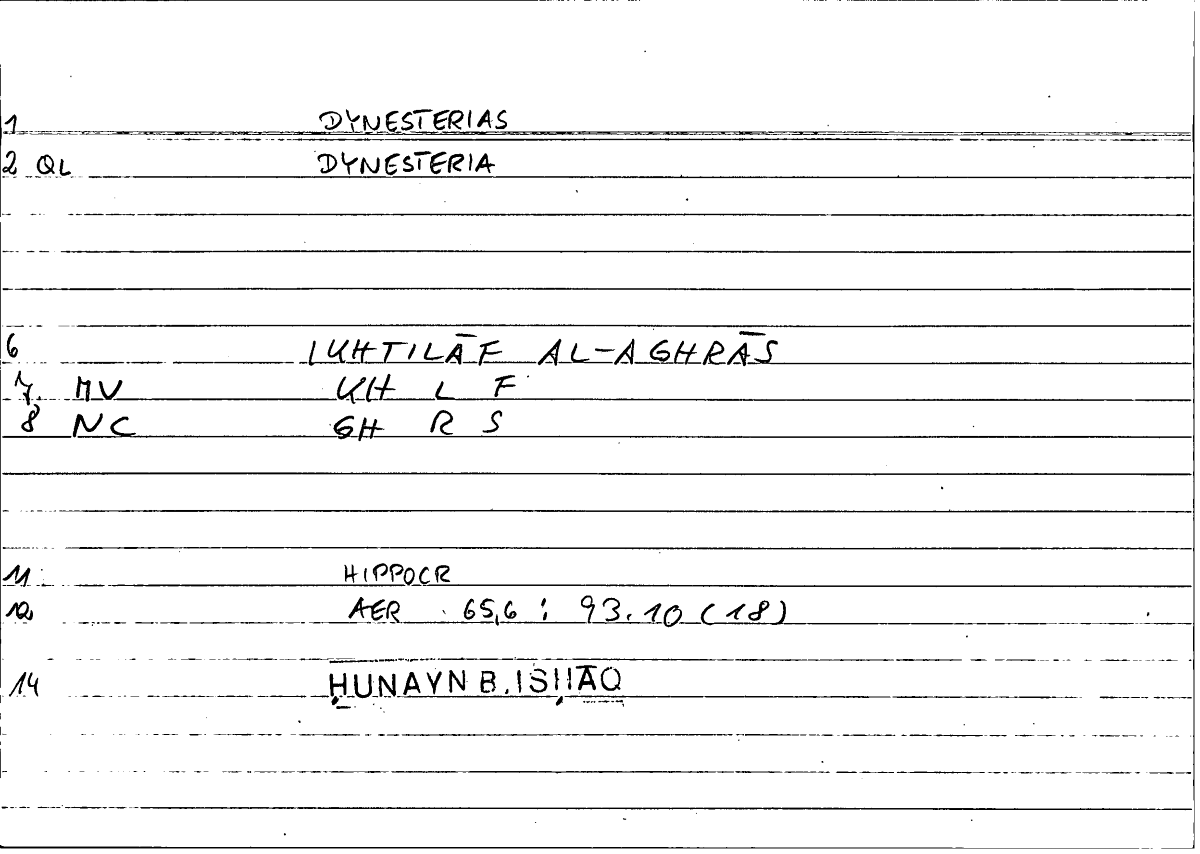 1 DYNESTERIAS
2 QL DYNESTERIA
6 IKHTILĀF AL-AGHRĀS
7. MV KH L F
8 NC GH R S
11 HIPPOCR
12 AER 65,6 : 93.10 (18)
14 ḤUNAYN B. ISḤĀQ